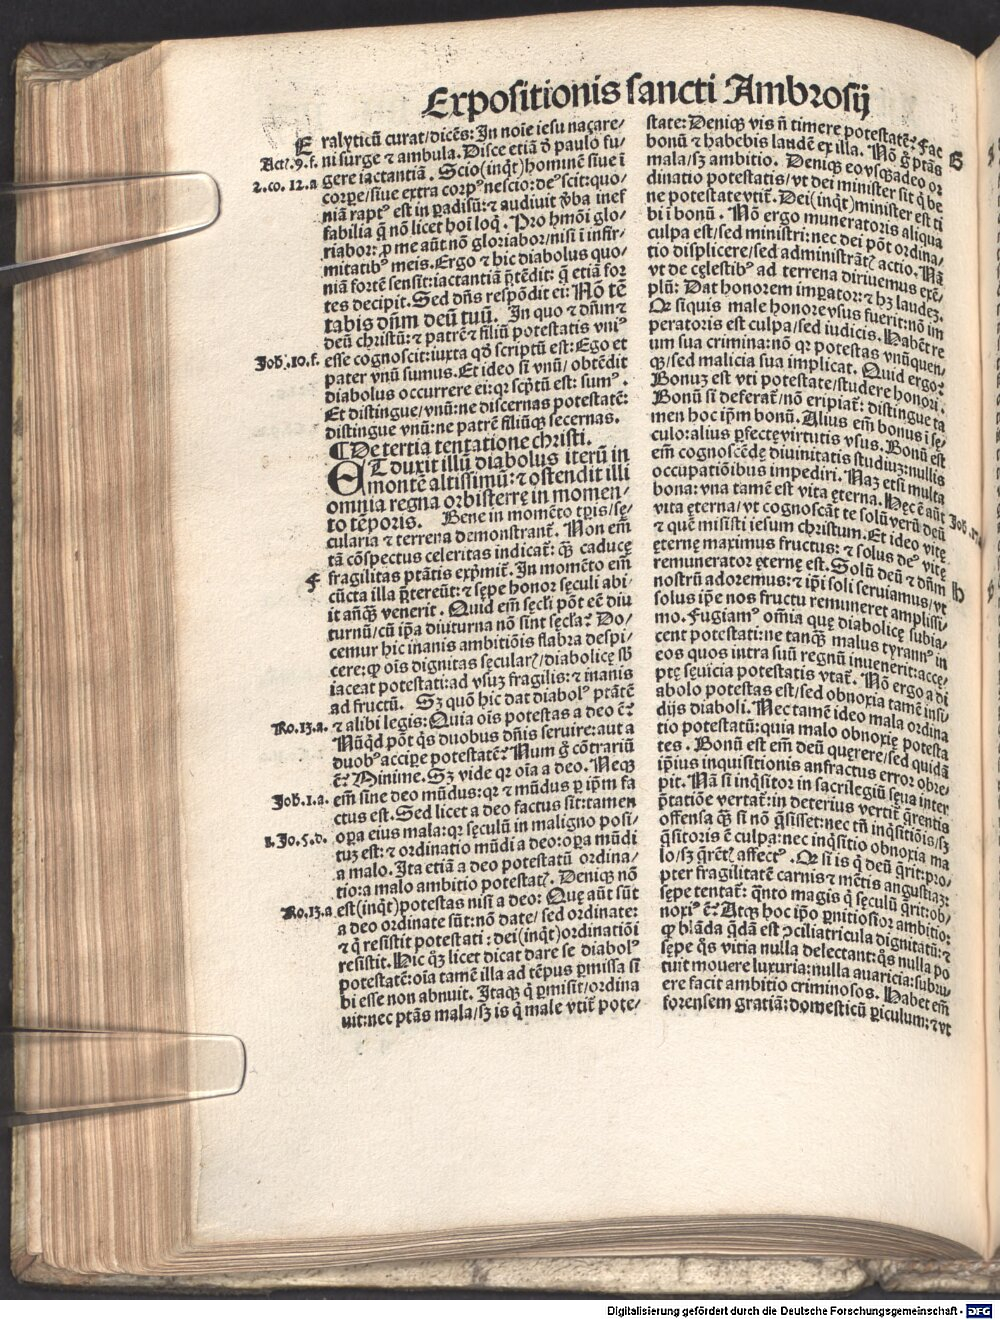 Expositionis sancti Ambrosij
E
ralyticū curat/dicēs: In noīe iesu naçare/
Act. 9. f. ni surge ⁊ ambula. Disce etiā ꝺ paulo fu/
2. co. 12. a gere iactantiā. Scio (inqͭ) hominē siue ī
corpe/siue extra corpꝰ nescio: deꝰ scit: quo/
niā raptꝰ est in ꝑadisū: ⁊ audiuit ꝟba inef
fabilia q̄ nō licet hoī loq̄. Pro hmōi glo/
riabor: ꝓ me aūt nō gloriabor/nisi ī infir/
mitatibꝰ meis. Ergo ⁊ hic diabolus quo/
niā fortē sensit: iactantiā p̄tēdit: q̄ etiā for
tes decipit. Sed dn̄s respōdit ei: Nō tē
tabis dn̄m deū tuū. In quo ⁊ dn̄m ⁊
deū christū: ⁊ patrē ⁊ filiū potestatis vniꝰ
Joh. 10. f. esse cognoscit: iuxta qd̄ scriptū est: Ego et
pater vnū sumus. Et ideo si vnū/obtēdit
diabolus occurrere ei: qꝛ scp̄tū est: sumꝰ.
Et distingue/vnū: ne discernas potestatē:
distingue vnū: ne patrē filiūqꝫ secernas.
¶ De tertia tentatione christi.
ET duxit illū diabolus iterū in
montē altissimū: ⁊ ostendit illi
omnia regna orbis terrę in momen/
to tēporis. Bene in momēto tp̄is/sę/
cularia ⁊ terrena demonstrant᷑. Non em̄
tā cōspectus celeritas indicat᷑: qꝫ caducę
f fragilitas ptātis exp̄mit᷑. In momēto em̄
cūcta illa p̄tereūt: ⁊ sępe honor sęculi abi/
it anꝙ̄ venerit. Quid em̄ sęcl̓i pōt eē diu
turnū/cū ip̄a diuturna nō sint sęcl̓a? Do/
cemur hic inanis ambitiōis flabra despi/
cere: ꝙ oīs dignitas sęcularꝭ/diabolicę sb̓
iaceat potestati: ad vsuꝫ fragilis: ⁊ inanis
ad fructū. Sꝫ quō hic dat diabolꝰ ptātē
Ro. 13. a. ⁊ alibi legis: Quia oīs potestas a deo ē?
Nūqͥd pōt qͥs duobus dn̄is seruire: aut a
duobꝰ accipe potestatē? Num ḡ cōtrariū
ē? Minime. Sꝫ vide qꝛ oīa a deo. Neqꝫ
Joh. 1. a. em̄ sine deo mūdus: qꝛ ⁊ mūdus ꝑ ip̄m fa
ctus est. Sed licet a deo factus sit: tamen
1. Jo. 5. d. oꝑa eius mala: qꝛ sęculū in maligno posi/
tuꝫ est: ⁊ ordinatio mūdi a deo: oꝑa mūdi
a malo. Ita etiā a deo potestatū ordina/
tio: a malo ambitio potestatꝭ. Deniqꝫ nō
Ro. 13. a est (inqͭ) potestas nisi a deo: Quę aūt sūt
a deo ordinate sūt: nō date/sed ordinate:
⁊ q̄ resistit potestati: dei (inqͭ) ordinatiōi
resistit. Hic qꝫ licet dicat dare se diabolꝰ
potestatē: oīa tamē illa ad tēpus ꝑmissa si
bi esse non abnuit. Itaqꝫ q̄ ꝑmisit/ordina
uit: nec ptās mala/sꝫ is q̄ male vtit᷑ pote/
state: Deniqꝫ vis n̄ timere potestatē? Fac G
bonū ⁊ habebis laudē ex illa. Nō ḡ ptās
mala/sꝫ ambitio. Deniqꝫ eo vsqꝫ adeo or
dinatio potestatis/vt dei minister sit q̄ be
ne potestate vtit᷑. Dei (inqͭ) minister est ti
bi ī bonū. Nō ergo muneratoris aliqua
culpa est/sed ministri: nec dei pōt ordina/
tio displicere/sed administrātꝭ actio. Nā
vt de cęlestibꝰ ad terrena diriuemus exē/
plū: Dat honorem imꝑator: ⁊ hꝫ laudeꝫ.
Qꝛ siquis male honore vsus fuerit: nō im
peratoris est culpa/sed iudicis. Habēt re
um sua crimina: nō qꝛ potestas vnūquen/
qꝫ/sed malicia sua implicat. Quid ergo?
Bonuꝫ est vti potestate/studere honori.
Bonū si deferat᷑/nō eripiat᷑: distingue ta
men hoc ip̄m bonū. Alius em̄ bonus ī sę/
culo: alius ꝑfectę virtutis vsus. Bonū est
em̄ cognoscēdę diuinitatis studiuꝫ: nullis
occupatiōibus impediri. Naꝫ etsi multa
bona: vna tamē est vita ęterna. Hęc ē aūt
vita ęterna/vt cognoscāt te solū verū deū Joh. 17.
⁊ quē misisti iesum christum. Et ideo vitę
ęternę maximus fructus: ⁊ solus deꝰ vitę
remunerator ęternę est. Solū deū ⁊ dn̄m
nostrū adoremus: ⁊ ip̄i soli seruiamus/vt H
solus ip̄e nos fructu remuneret amplissi/
mo. Fugiamꝰ om̄ia quę diabolicę subia/
cent potestati: ne tanꝙ̄ malus tyrannꝰ in
eos quos intra suū regnū inuenerit: accę/
ptę sęuicia potestatis vtat᷑. Nō ergo a di
abolo potestas est/sed obnoxia tamē insi/
dijs diaboli. Nec tamē ideo mala ordina
tio potestatū: quia malo obnoxię potesta
tes. Bonū est em̄ deū quęrere/sed quidā
ip̄ius inquisitionis anfractus error obre/
pit. Nā si inqͥsitor in sacrilegiū sęua inter
p̄tatiōe vertat᷑: in deterius vertit᷑ q̄rentis
offensa ꝙ̄ si nō q̄sisset: nec tn̄ inqͥsitiōis/sꝫ
q̄sitoris ē culpa: nec inqͥsitio obnoxia ma
lo/sꝫ q̄rētꝭ affectꝰ. Qꝛ si is q̄ deū q̄rit: pro/
pter fragilitatē carnis ⁊ mētis angustiaꝫ:
sępe tentat᷑: qͣnto magis q̄ sęculū q̄rit: ob/
noxiꝰ ē? Atqꝫ hoc ip̄o ꝑnitiosior ambitio:
ꝙ blāda qͣdā est ↄciliatricula dignitatū: ⁊
sępe qͦs vitia nulla delectant: qͦs nulla po
tuit mouere luxuria: nulla auaricia: subru/
ere facit ambitio criminosos. Habet em̄
forensem gratiā: domesticū ꝑiculum: ⁊ vt
Digitalisierung gefördert durch die Deutsche Forschungsgemeinschaft - DFG